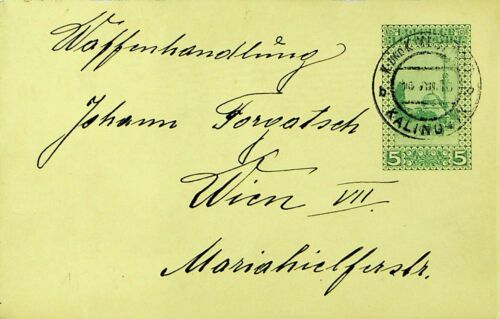 Waffenhandlung
Johann Forvatsch
Wien VII.
Mariahilferstr.
KALINO
5 5